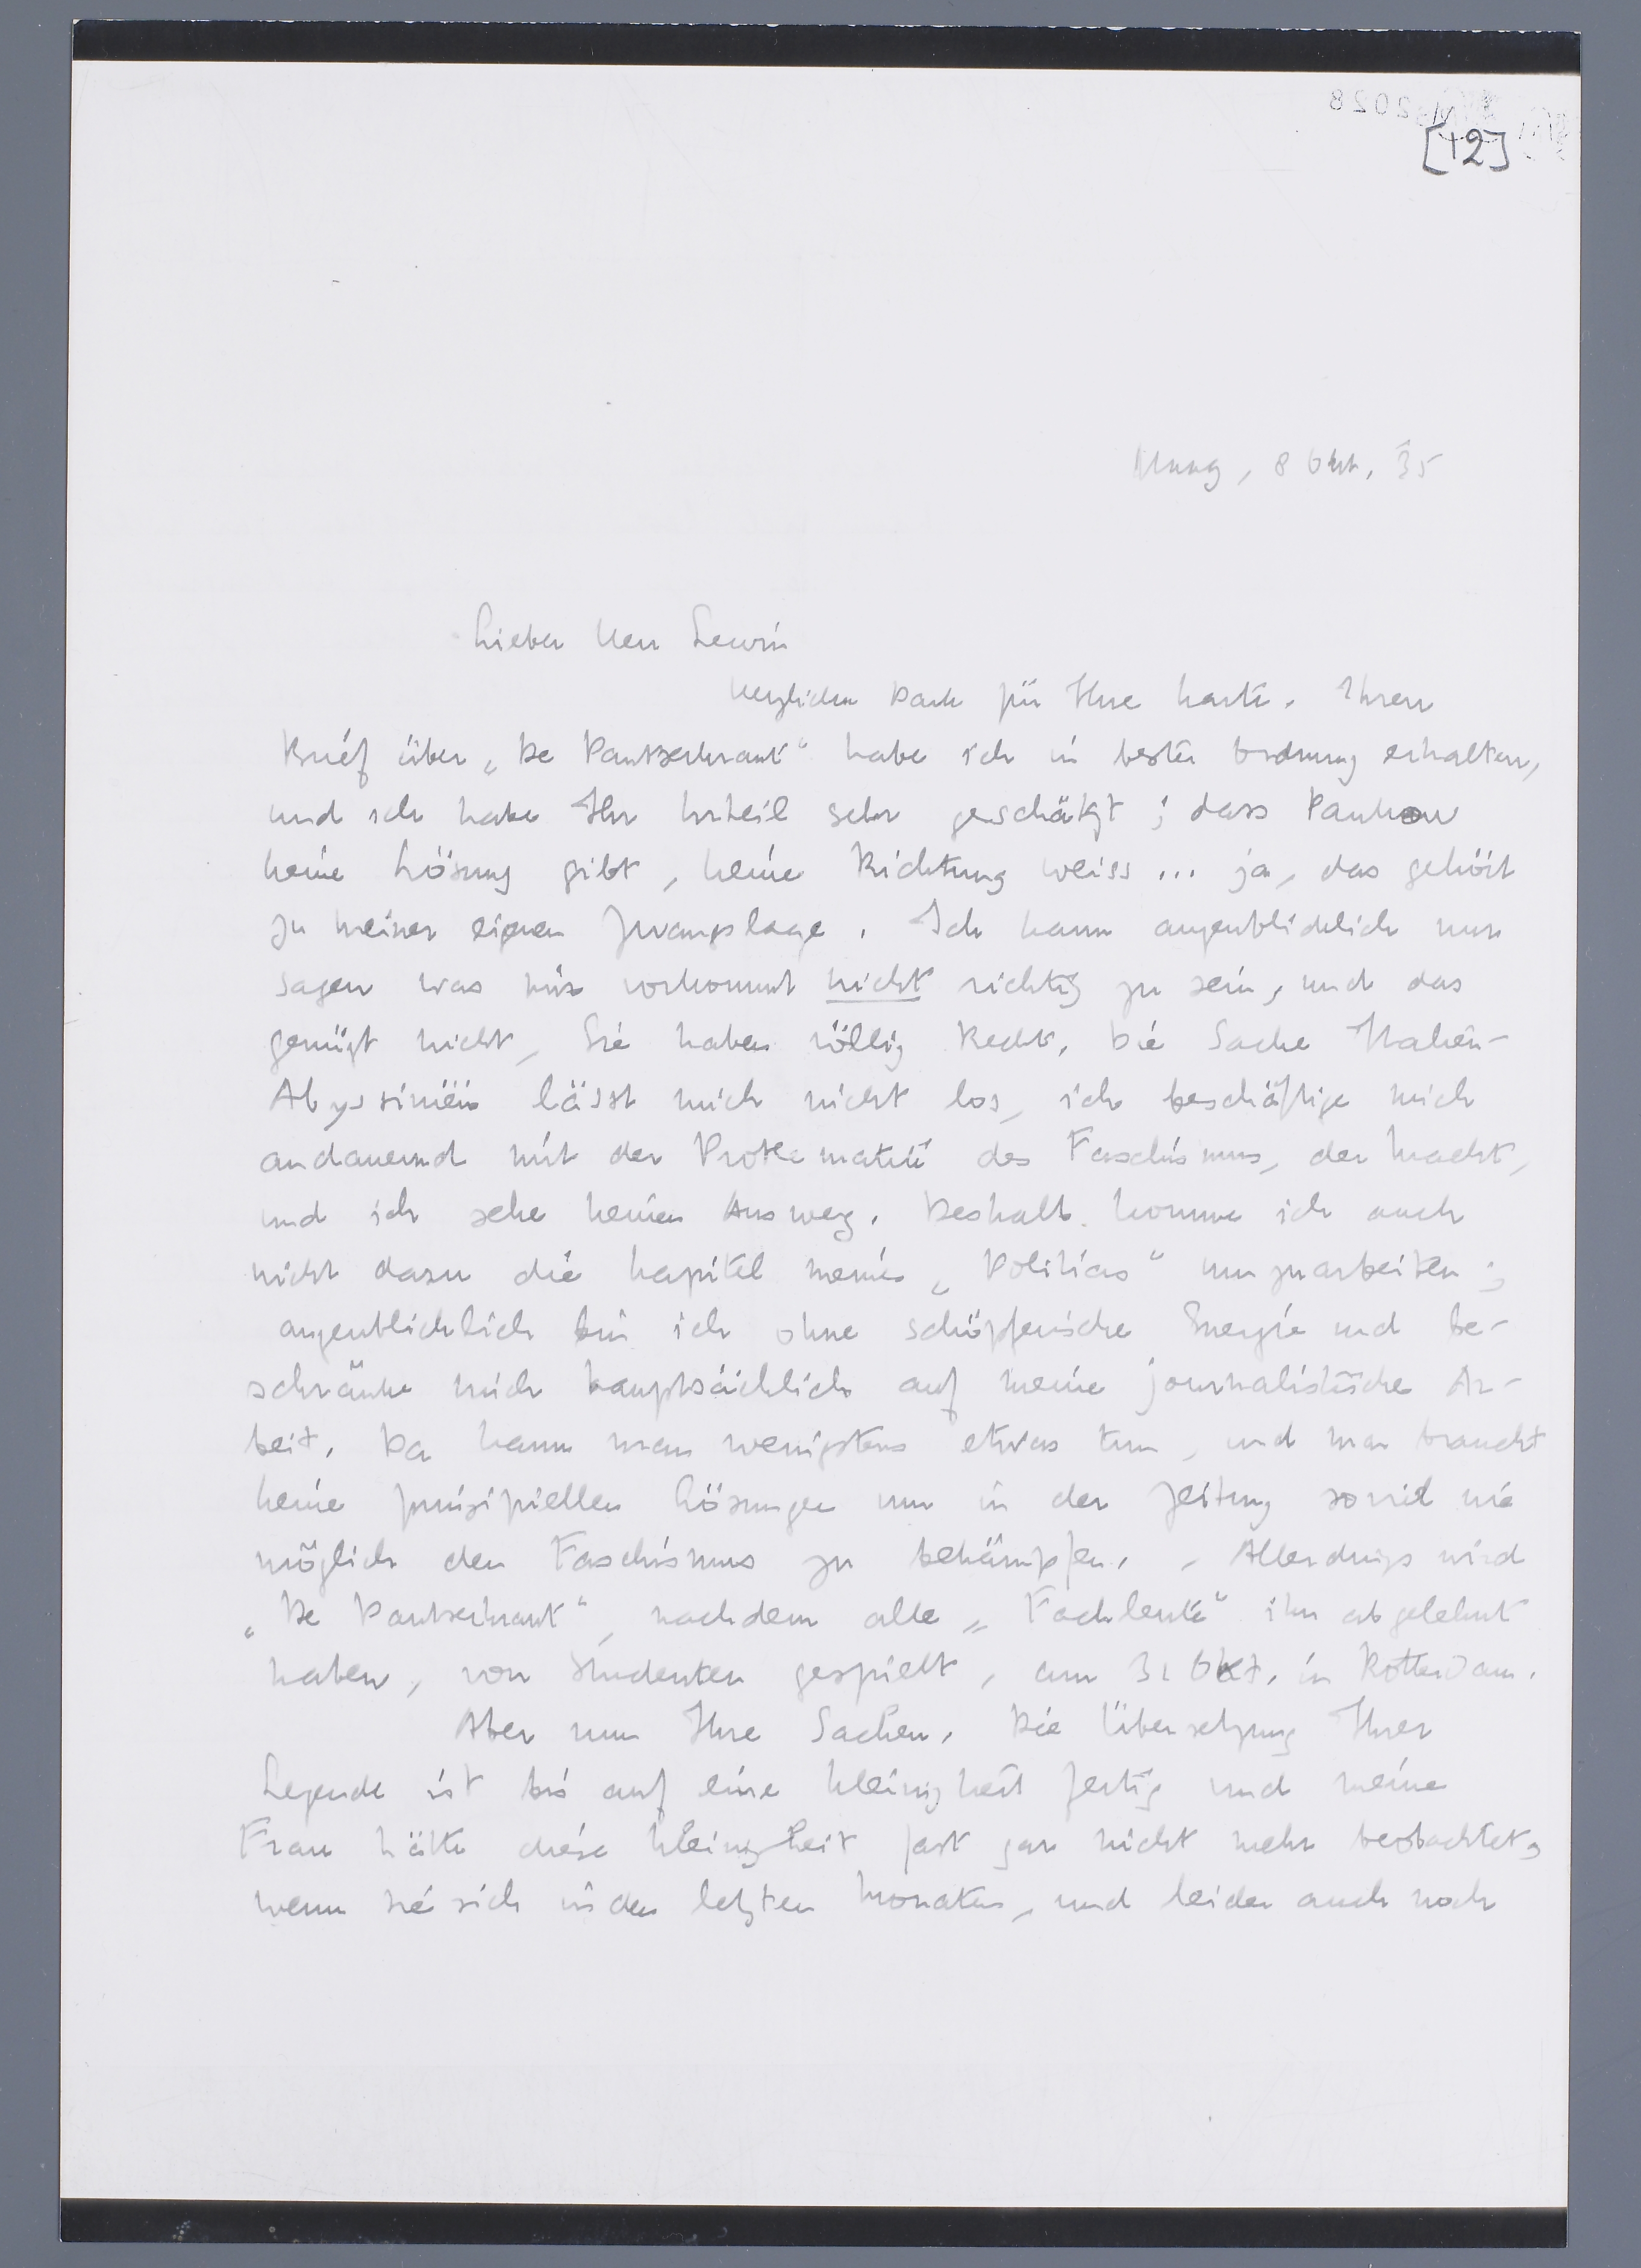 [12]
Haag, 8 Okt. 35
Lieber Herr Lewin
Herzlichen Dank für Ihre Karte. Ihren
Brief über „De Pantserkrant“ habe ich in bester Ordnung erhalten,
und ich habe Ihr Urteil sehr geschätzt; dass Pankow
keine Lösung gibt, keine Richtung weiss... ja, das gehört
zu meiner eigenen Zwangslage. Ich kann augenblicklich nur
sagen was mir vorkommt nicht richtig zu sein, und das
genügt nicht, Sie haben völlig Recht. Die Sache Italien-
Abyssiniën lässt mich nicht los, ich beschäftige mich
andauernd mit der Problematik des Faschismus, der Macht,
und ich sehe keinen Ausweg. Deshalb komme ich auch
nicht dazu die Kapitel meines „Politicus“ umzuarbeiten;
augenblicklich bin ich ohne schöpferische Energie und be-
schränke mich hauptsächlich auf meine journalistische Ar-
beit. Da kann man wenigstens etwas tun, und man braucht
keine prinzipiellen Lösungen um in der Zeitung soviel wie
möglich den Faschismus zu bekämpfen. - Allerdings wird
„De Pantserkrant“, nachdem alle „Fachleute“ ihn abgelehnt
haben, von Studenten gespielt, am 31 Okt. in Rotterdam.
Aber nun Ihre Sachen. Die Übersetzung Ihrer
Legende ist bis auf eine Kleinigkeit fertig und meine
Frau hätte diese Kleinigkeit fast gar nicht mehr beobachtet,
wenn sie sich in den letzten Monaten, und leider auch noch